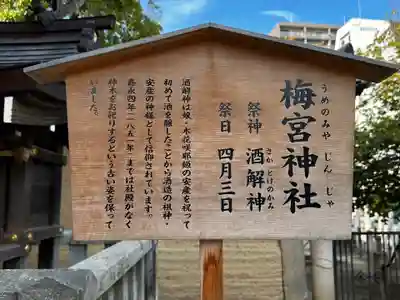 梅宮神社
うめのみや じん じゃ
祭神 酒解神
さか とけのかみ
祭日 四月三日
酒解神は娘・木花咲耶姫の安産を祝って
初めて酒を醸したことから酒造の祖神・
安産の神様として信仰されています。
嘉永四年(一八五一)までは社殿がなく
神木をお祀りするという古い姿を保って
いました。